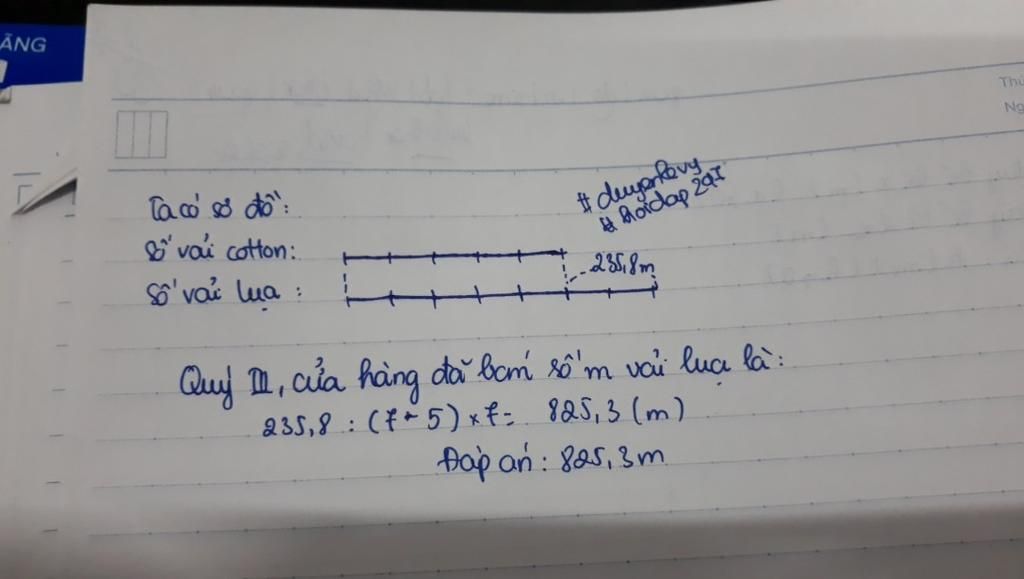 ÃNG
Thứ
Ng
Ta có sơ đồ:
#duyenlavy
#hoidap 247
Số vải cotton:
235,8m
Số vải lụa :
Quý III, cửa hàng đã bán số m vải lụa là:
235,8 : (7 - 5) x 7 = 825,3 (m)
Đáp án : 825,3m